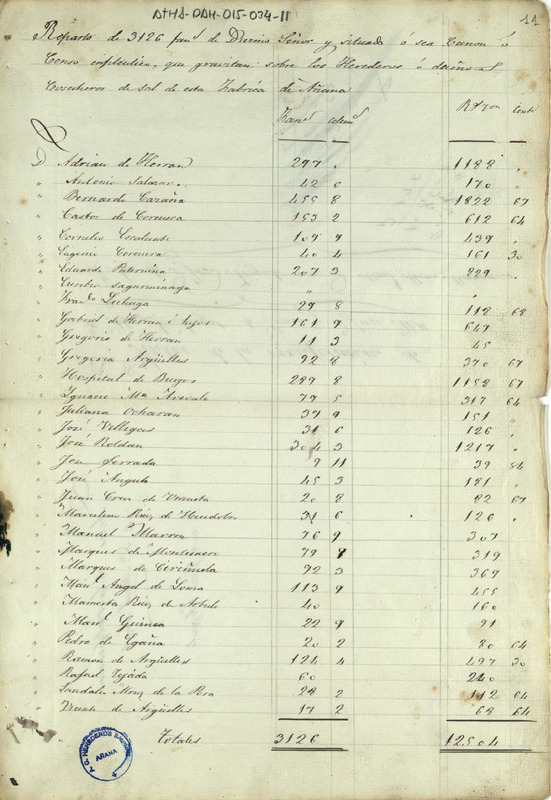 ATHA-DAH-015-034-11
11
Reparto de 3126 fans de Diezmo Señor y situado ó sea Canon ó
Censo enfiteutico, que gravitan sobre los Herederos ó dueños
Cosecheros de sal de esta Fabrica de Añana
Fans celms Rs von Cents
D Adrian de Herran 297 . 1188 .
" Antonio Salazar 42 6 170 .
" Bernardo Caraña 455 8 1822 67
" Castor de Corcuera 153 2 612 64
" Cornelio Escalante 109 9 439 .
" Eugenio Corcuera 40 4 161 30
" Eduardo Paternina 207 3 829 .
" Eusebio Sagarminaga "
" Franco Lechuga 28 112 68
" Gabriel de Herran é hijos 161 9 647
" Gregorio de Herran 11 3 45
" Gregoria Argüelles 92 8 370 67
" Hospital de Burgos 289 8 1158 67
" Ignacio Ma Arevalo 79 5 317 64
" Juliana Ocharan 37 9 151 "
" José Villegas 31 6 126 .
" José Roldan 304 3 1217 .
" José Serrada 9 11 39 84
" José Angulo 45 3 181 .
" Juan Cruz de Uruñuela 20 8 82 67
" Marcelino Ruiz de 31 6 126 .
" Manuel Marron 76 9 307
" Marques de Montenuevo 79 319
" Marques de Ciriñuela 92 3 369
" Manl Angel de Loma 113 9 455
" Mamerta Ruiz de 40 160
" Manl Guinea 22 9 91
" Pedro de Egaña 20 2 80 64
" Ramon de Argüelles 124 4 497 30
" Rafael Tejada 60 240
" Sandalio de la 28 2 112 64
" Vicente de Argüelles 17 2 68 64
Totales 3126 12504
HEREDEROS
AÑANA